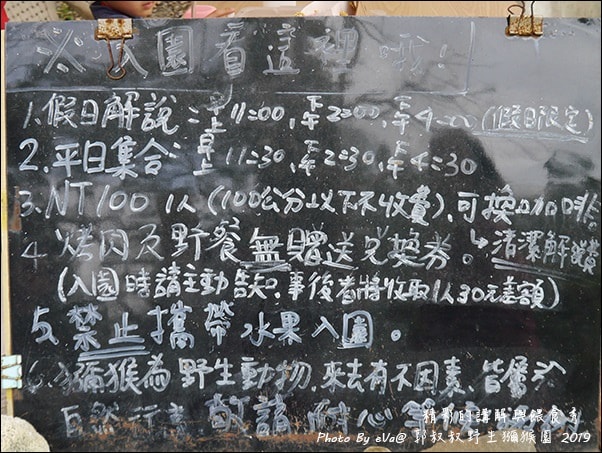 ※入園看這裡哦!
1.假日解說:早上11:00,下午2:00,下午4:00(假日限定)
2.平日集合:早上11:30,下午2:30,下午4:30
3.NT100 1人(100公分以下不收費),可換咖啡
4.烤肉及野餐無贈送兌換券。↳清潔解說費
(入園時請主動告知,事後者將收取1人30元差額)
5.禁止攜帶水果入園。
6.獼猴為野生動物,來去有不因素,皆屬於
自然行為 敬請耐心等
猜影的講解與餵食秀
Photo By eVa@ 郭叔叔野生獼猴園 2019